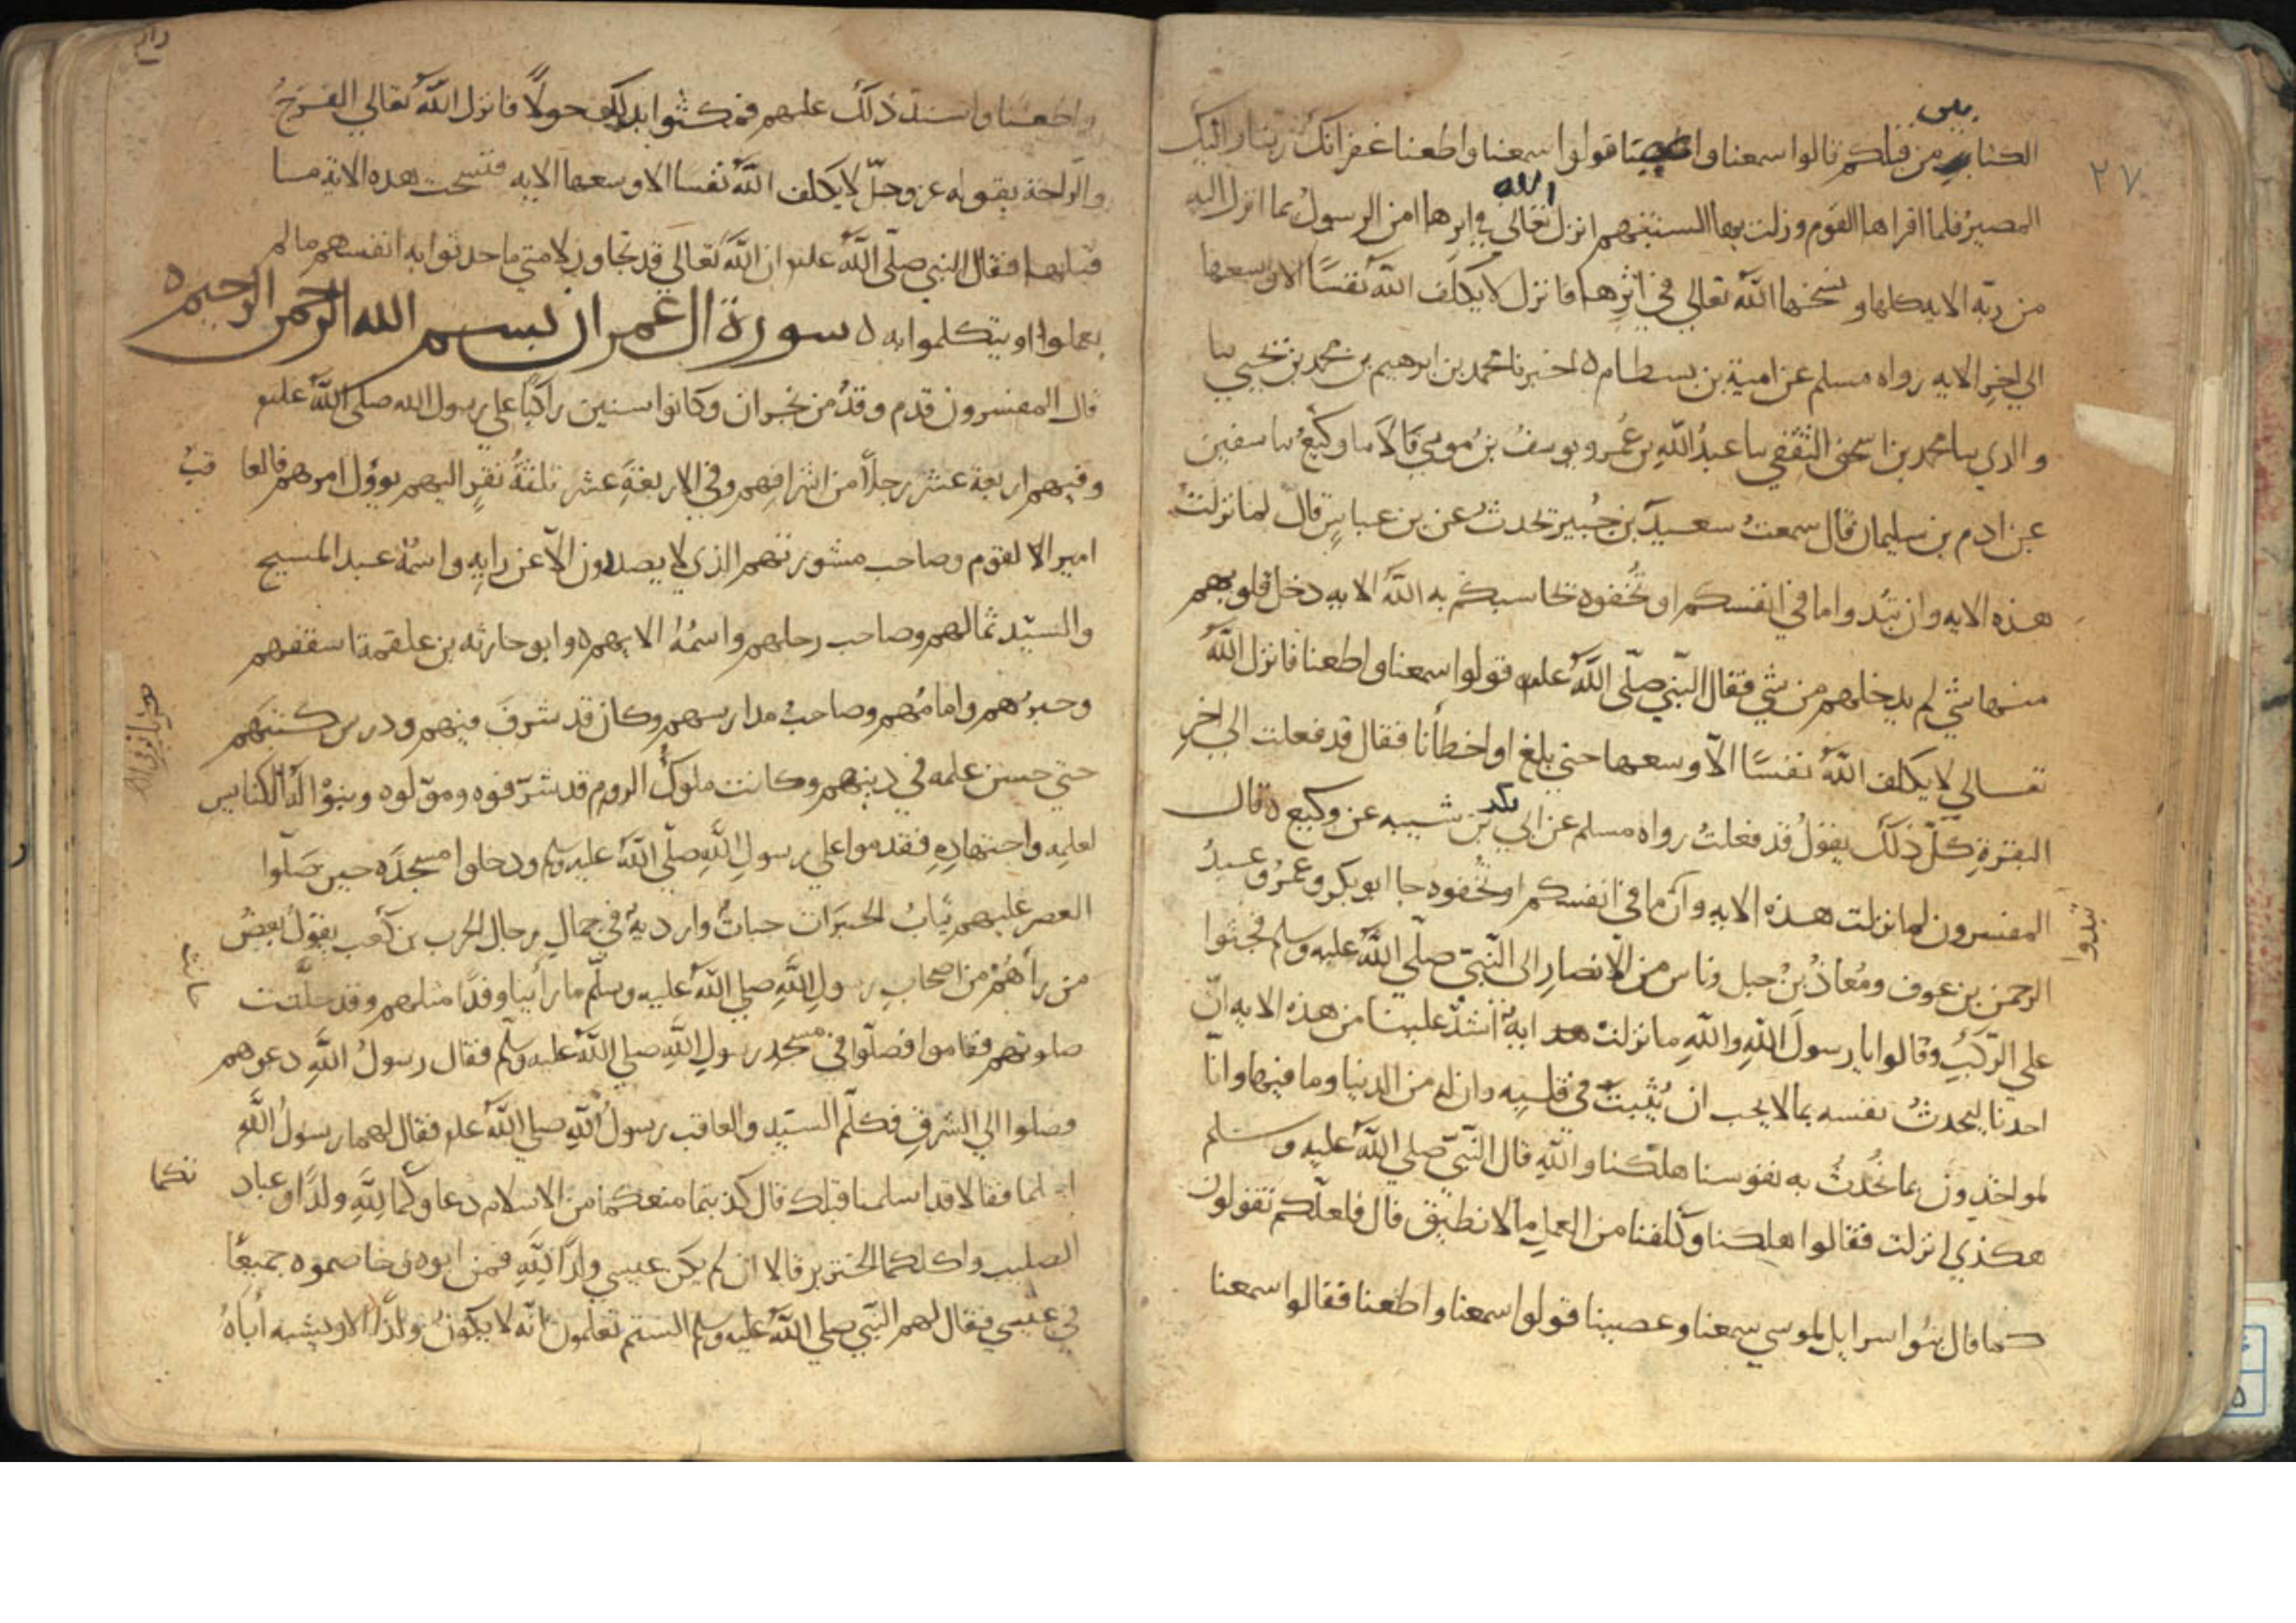 ٢٧
بين
الكتاب من قبلكم قالوا سمعنا وعصينا قولوا سمعنا واطعنا غفرانك ربنا واليك
المصير فلما اقراها القوم وذلت بها السنتهم انزل الله تعالي في اثرها امن الرسول بما انزل اليه
من ربه الايه كلها ونسخها الله تعالي في اثرها فانزل لا يكلف الله نفسًا الا وسعها
الي اخر الايه رواه مسلم عن امية بن بسطام ه اخبرنا محمد بن ابرهيم بن محمد بن يحيي نبا
والدي نبا محمد بن اسحق الثقفي نبا عبد الله بن عمر ويوسف بن موسي قالا نبا وكيع نبا سفين
عن ادم بن سليمان قال سمعت سعيد بن جبير يحدث عن بن عباس قال لما نزلت
هذه الايه وان تبدوا ما في انفسكم او تخفوه يحاسبكم به الله الايه دخل قلوبهم
منها شي لم يدخلهم من شي فقال النبي صلى الله عليه قولوا سمعنا واطعنا فانزل الله
تعالي لا يكلف الله نفسًا الا وسعها حتي بلغ او اخطأنا فقال قد فعلت الي اخر
البقرة كل ذلك يقول قد فعلت رواه مسلم عن ابي بكر بن شيبه عن وكيع ه قال
المفسرون لما نزلت هذه الايه وان ما في انفسكم او تخفوه جا ابو بكر وعمر وعبد
تبدوا
الرحمن بن عوف ومعاذ بن جبل وناس من الانصار الى النبي صلى الله عليه وسلم فجثوا
علي الركب وقالوا يا رسول الله والله ما نزلت اية اشد علينا من هذه الايه ان
احدنا ليحدث نفسه بما لا يحب ان يثبت في قلبه وان له من الدنيا وما فيها وانا
لمواخذون بما نحدث به نفوسنا هلكنا والله قال النبي صلي الله عليه وسلم
هكذي انزلت فقالوا هلكنا وكلفنا من العمل ما لا نطيق قال فلعلكم تقولون
كما قال بنوا اسرايل لموسي سمعنا وعصينا قولوا سمعنا واطعنا فقالوا سمعنا
واطعنا واشتد ذلك عليهم فمكثوا بذلك حولًا فانزل الله تعالي الفرج
والراحة بقوله عز وجل لا يكلف الله نفسًا الا وسعها الايه فنسخت هذه الاية ما
قبلها فقال النبي صلى الله عليه ان الله تعالي قد تجاوز لامتي ما حدثوا به انفسهم ما لم
يعملوا او يتكلموا به ه سورة ال عمران بسم الله الرحمن الرحيم ه
قال المفسرون قدم وفد من نجران وكانوا ستين راكبًا علي رسول الله صلى الله عليه
وفيهم اربعة عشر رجلًا من اشرافهم وفي الاربعة عشر ثلثة نفر اليهم يوول امرهم فالعا قب
امير الالقوم وصاحب مشورتهم الذي لا يصدرون الا عن رايه واسمه عبد المسيح
والسيد ثمالهم وصاحب رحلهم واسمه الايهم ه وابو حارثه بن علقمة اسقفهم
وحبرهم وامامهم وصاحب مدارسهم وكان قد شرف فيهم ودرس كتبهم
حتي حسن علمه في دينهم وكانت ملوك الروم قد شرفوه ومولوه وبنوا له الكنايس
لعلمه واجتهاده فقدموا علي رسول الله صلى الله عليه وسلم ودخلوا مسجده حين صلوا
العصر عليهم ثياب الحبرات جبات واردية في جمال رجال الحرب بن كعب يقول بعض
من رأهم من اصحاب رسول الله صلي الله عليه وسلم ما رأينا وفدًا مثلهم وقد حانت
صلوتهم فقاموا فصلوا في مسجد رسول الله صلي الله عليه وسلم فقال رسول الله دعوهم
فصلوا الي الشرق فكلم السيد والعاقب رسول الله صلي الله عليه فقال لهما رسول الله
اسلما فقالا قد اسلمنا قبلك قال كذبتما منعكما من الاسلام دعاوكما لله ولدًا وعباد تكما
الصليب واكلكما الخنزير قالا ان لم يكن عيسي ولدًا لله فمن ابوه وخاصموه جميعًا
في عيسي فقال لهم النبي صلي الله عليه وسلم الستم تعلمون انه لا يكون ولدًا الا ويشبه اباه